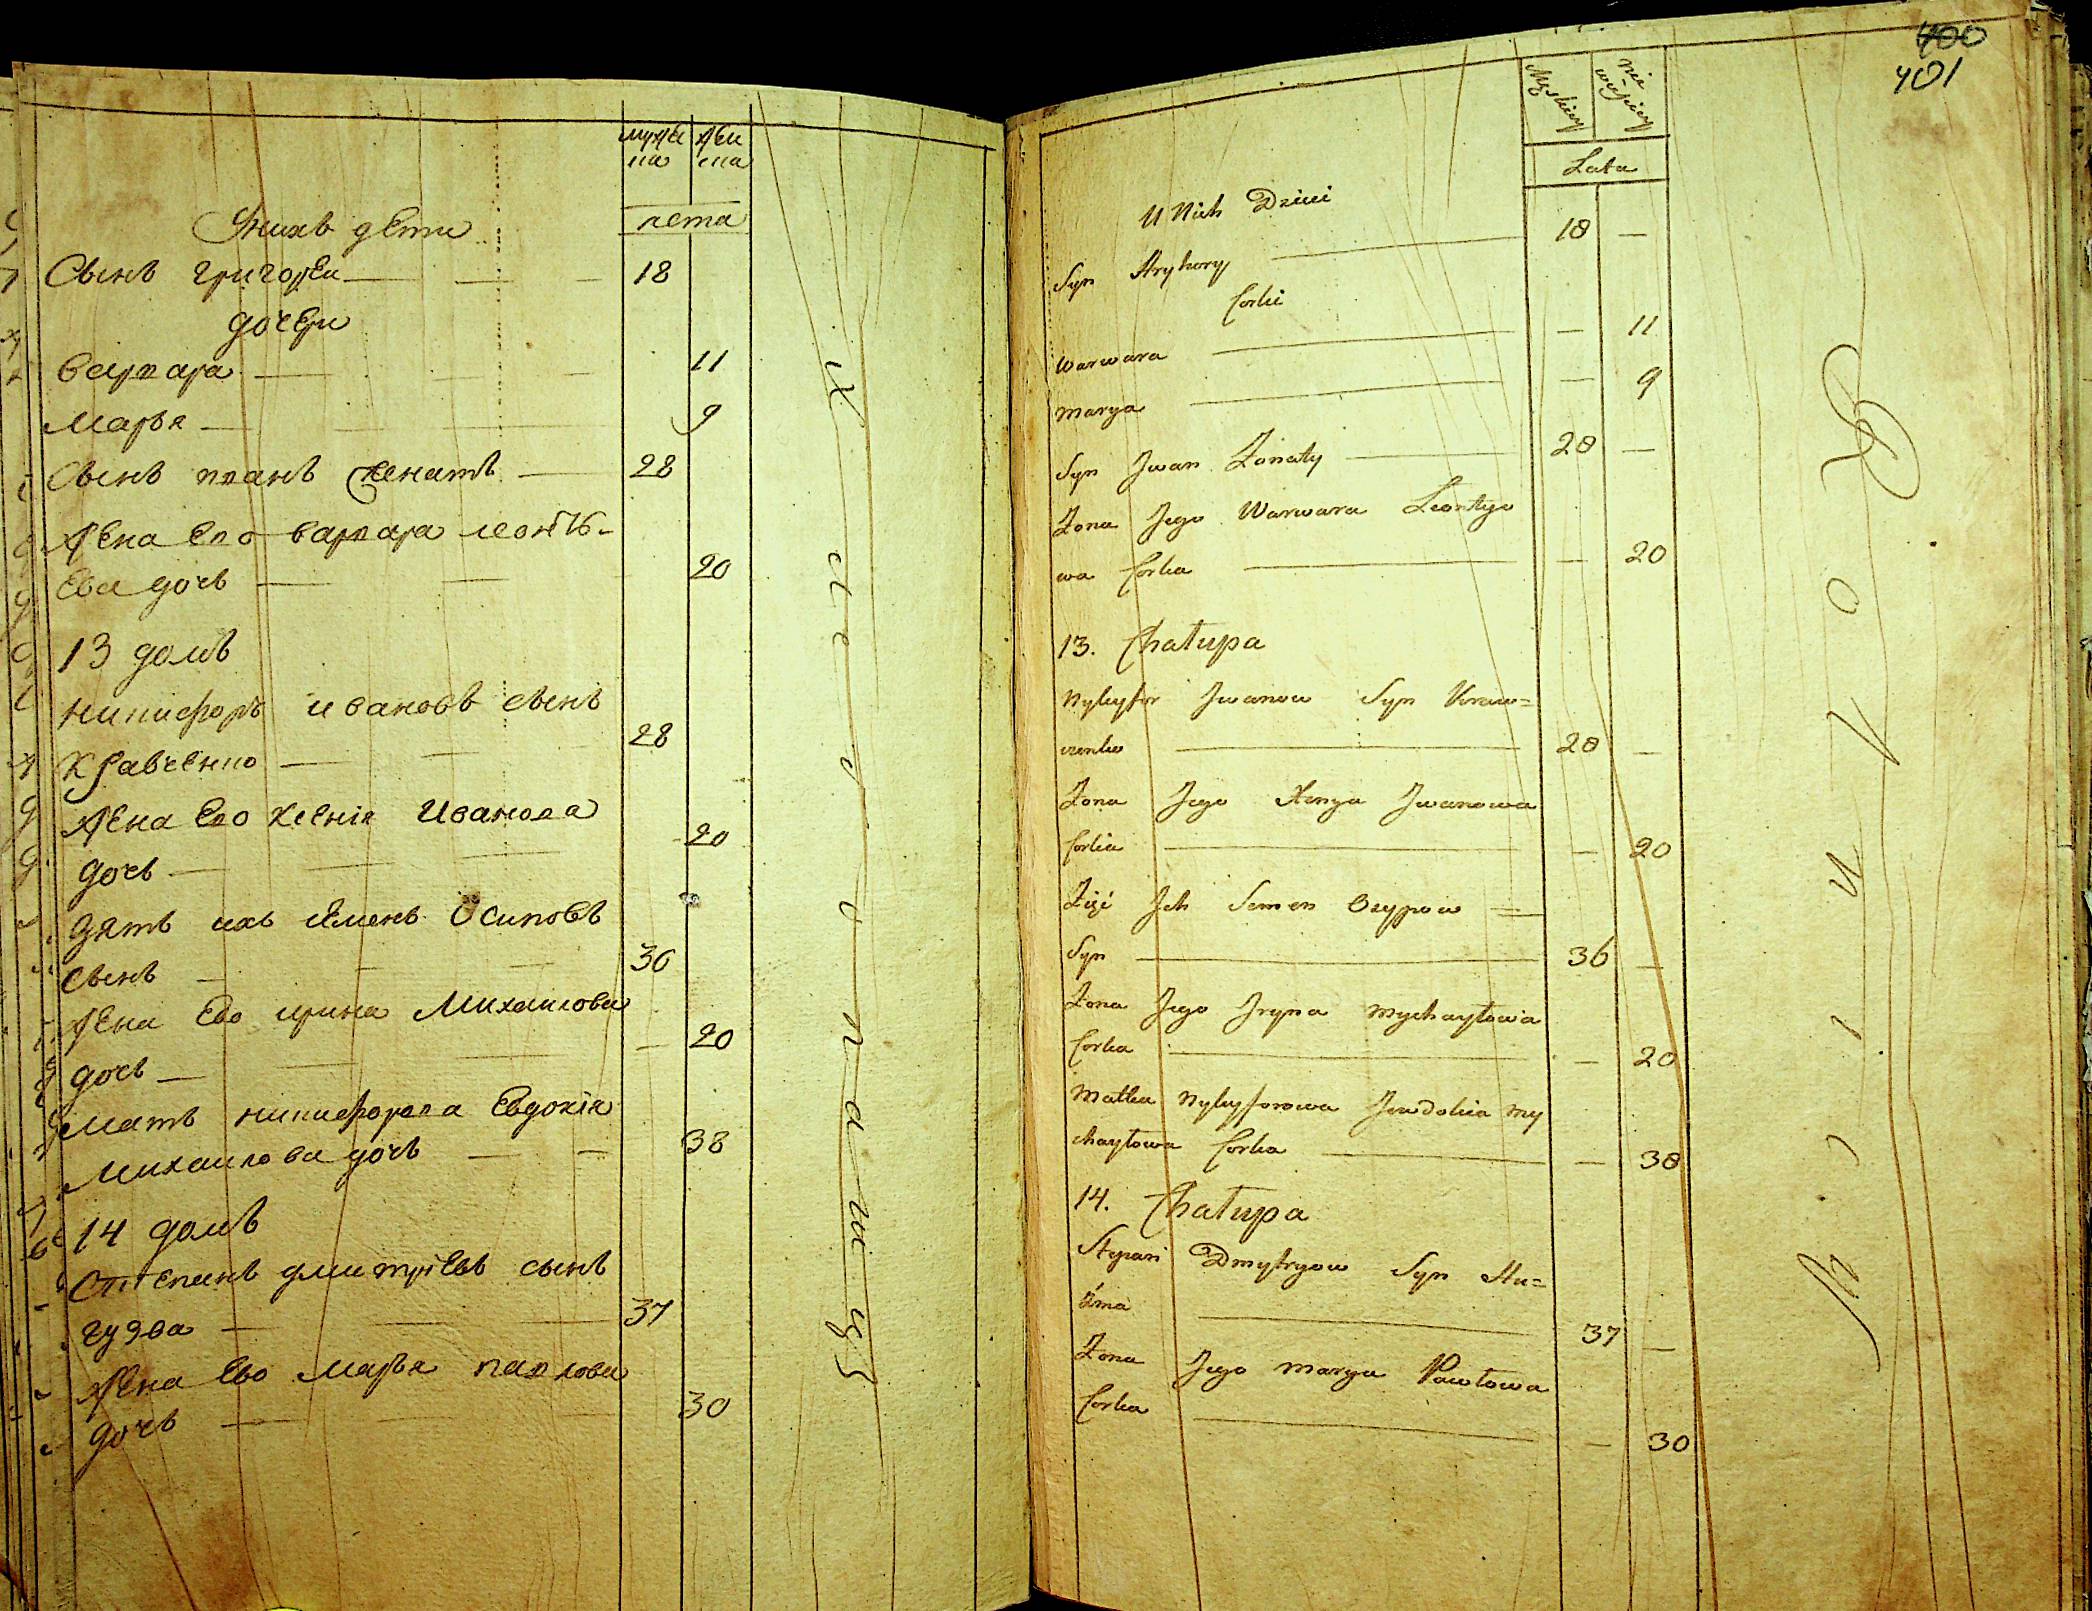 мужес
ка
жен
ска
лета
У нихъ дети
Сынъ григореи 18
дочери
варвара 11
марья 9
Сынъ иванъ женатъ 28
жена Его варвара леонть-
Ева дочь 20
13 домъ
никифоръ ивановъ сынъ
кравченко 28
жена Ево ксенія Иванова
дочь 20
зять ихъ семенъ Осиповъ
сынъ 36
жена Ево ирина Михаилова
дочь 20
мать никифорова Евдокія
михаилова дочь 38
14 домъ
Степанъ дмитріевъ сынъ
гузва 37
жена Ево марья павлова
дочь 30
400
401
Męskiey
Lata
U Nich Dzieci
Syn Hryhory 18 —
Corki
Warwara — 11
Marya — 9
Syn Jwan Żonaty 28 —
Żona Jego Warwara Leontyo
wa Corka — 20
13. Chałupa
Nykyfor Jwanow Syn Kraw=
czenko 28 —
Żona Jego Xenya Jwanowa
Corka — 20
Zięć Jch Semen Osypow
Syn 36 —
Żona Jego Jryna Mychayłowa
Corka — 20
Matka Nykyforowa Jewdokia My
chayłowa Corka — 38
14. Chałupa
Stepan Dmytryow Syn Hu=
zwa 37 —
Żona Jego Marya Pawłowa
Corka — 30